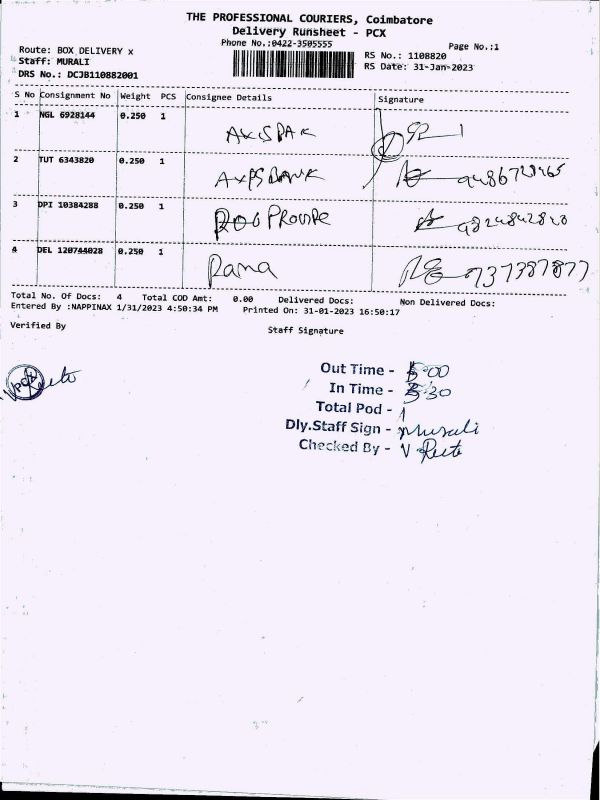 THE PROFESSIONAL COURIERS, Coimbatore
Delivery Runsheet - PCX
Phone No.:0422-3505555
Page No.:1
Route: BOX DELIVERY x
Staff: MURALI
DRS No.: DCJB110882001
RS No.: 1108820
RS Date: 31-Jan-2023
S No Consignment No Weight PCS Consignee Details Signature
1 NGL 6928144 0.250 1
2 TUT 6343820 0.250 1 AXPSBANK
3 DPI 10384288 0.250 1
4 DEL 120744028 0.250 1 Rama
Total No. Of Docs: 4 Total COD Amt: 0.00 Delivered Docs: Non Delivered Docs:
Entered By :NAPPINAX 1/31/2023 4:50:34 PM Printed On: 31-01-2023 16:50:17
Verified By Staff Signature
Out Time - 5:00
In Time - 5:30
Total Pod - 1
Dly.Staff Sign - Murali
Checked By - V